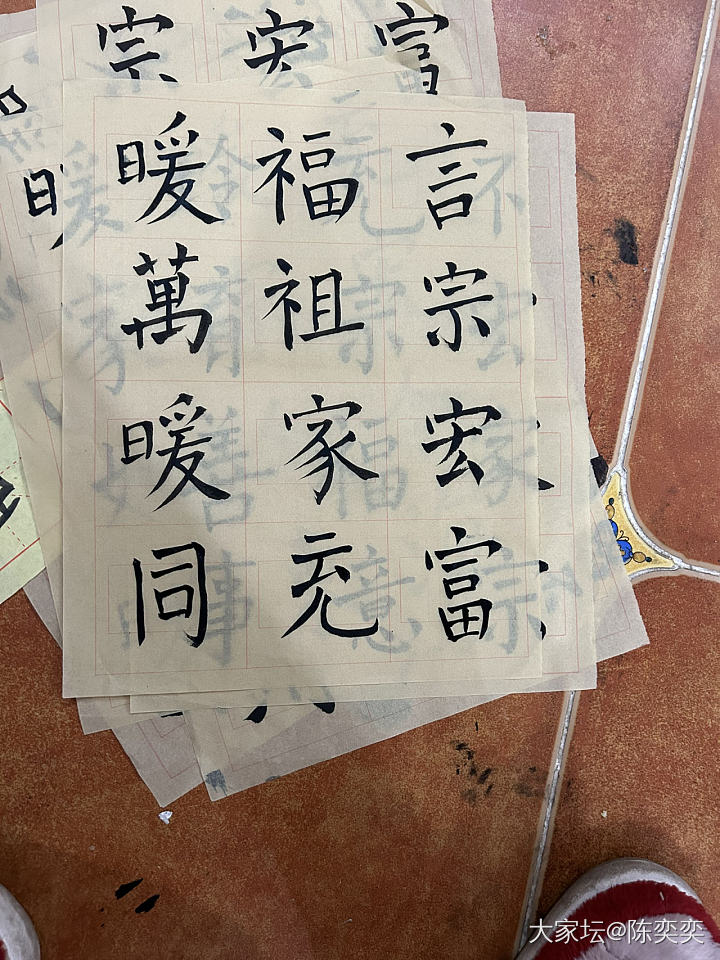 宗 宏 富
言宗宏富
福祖家充
暖萬暖同
大家坛@陈奕奕